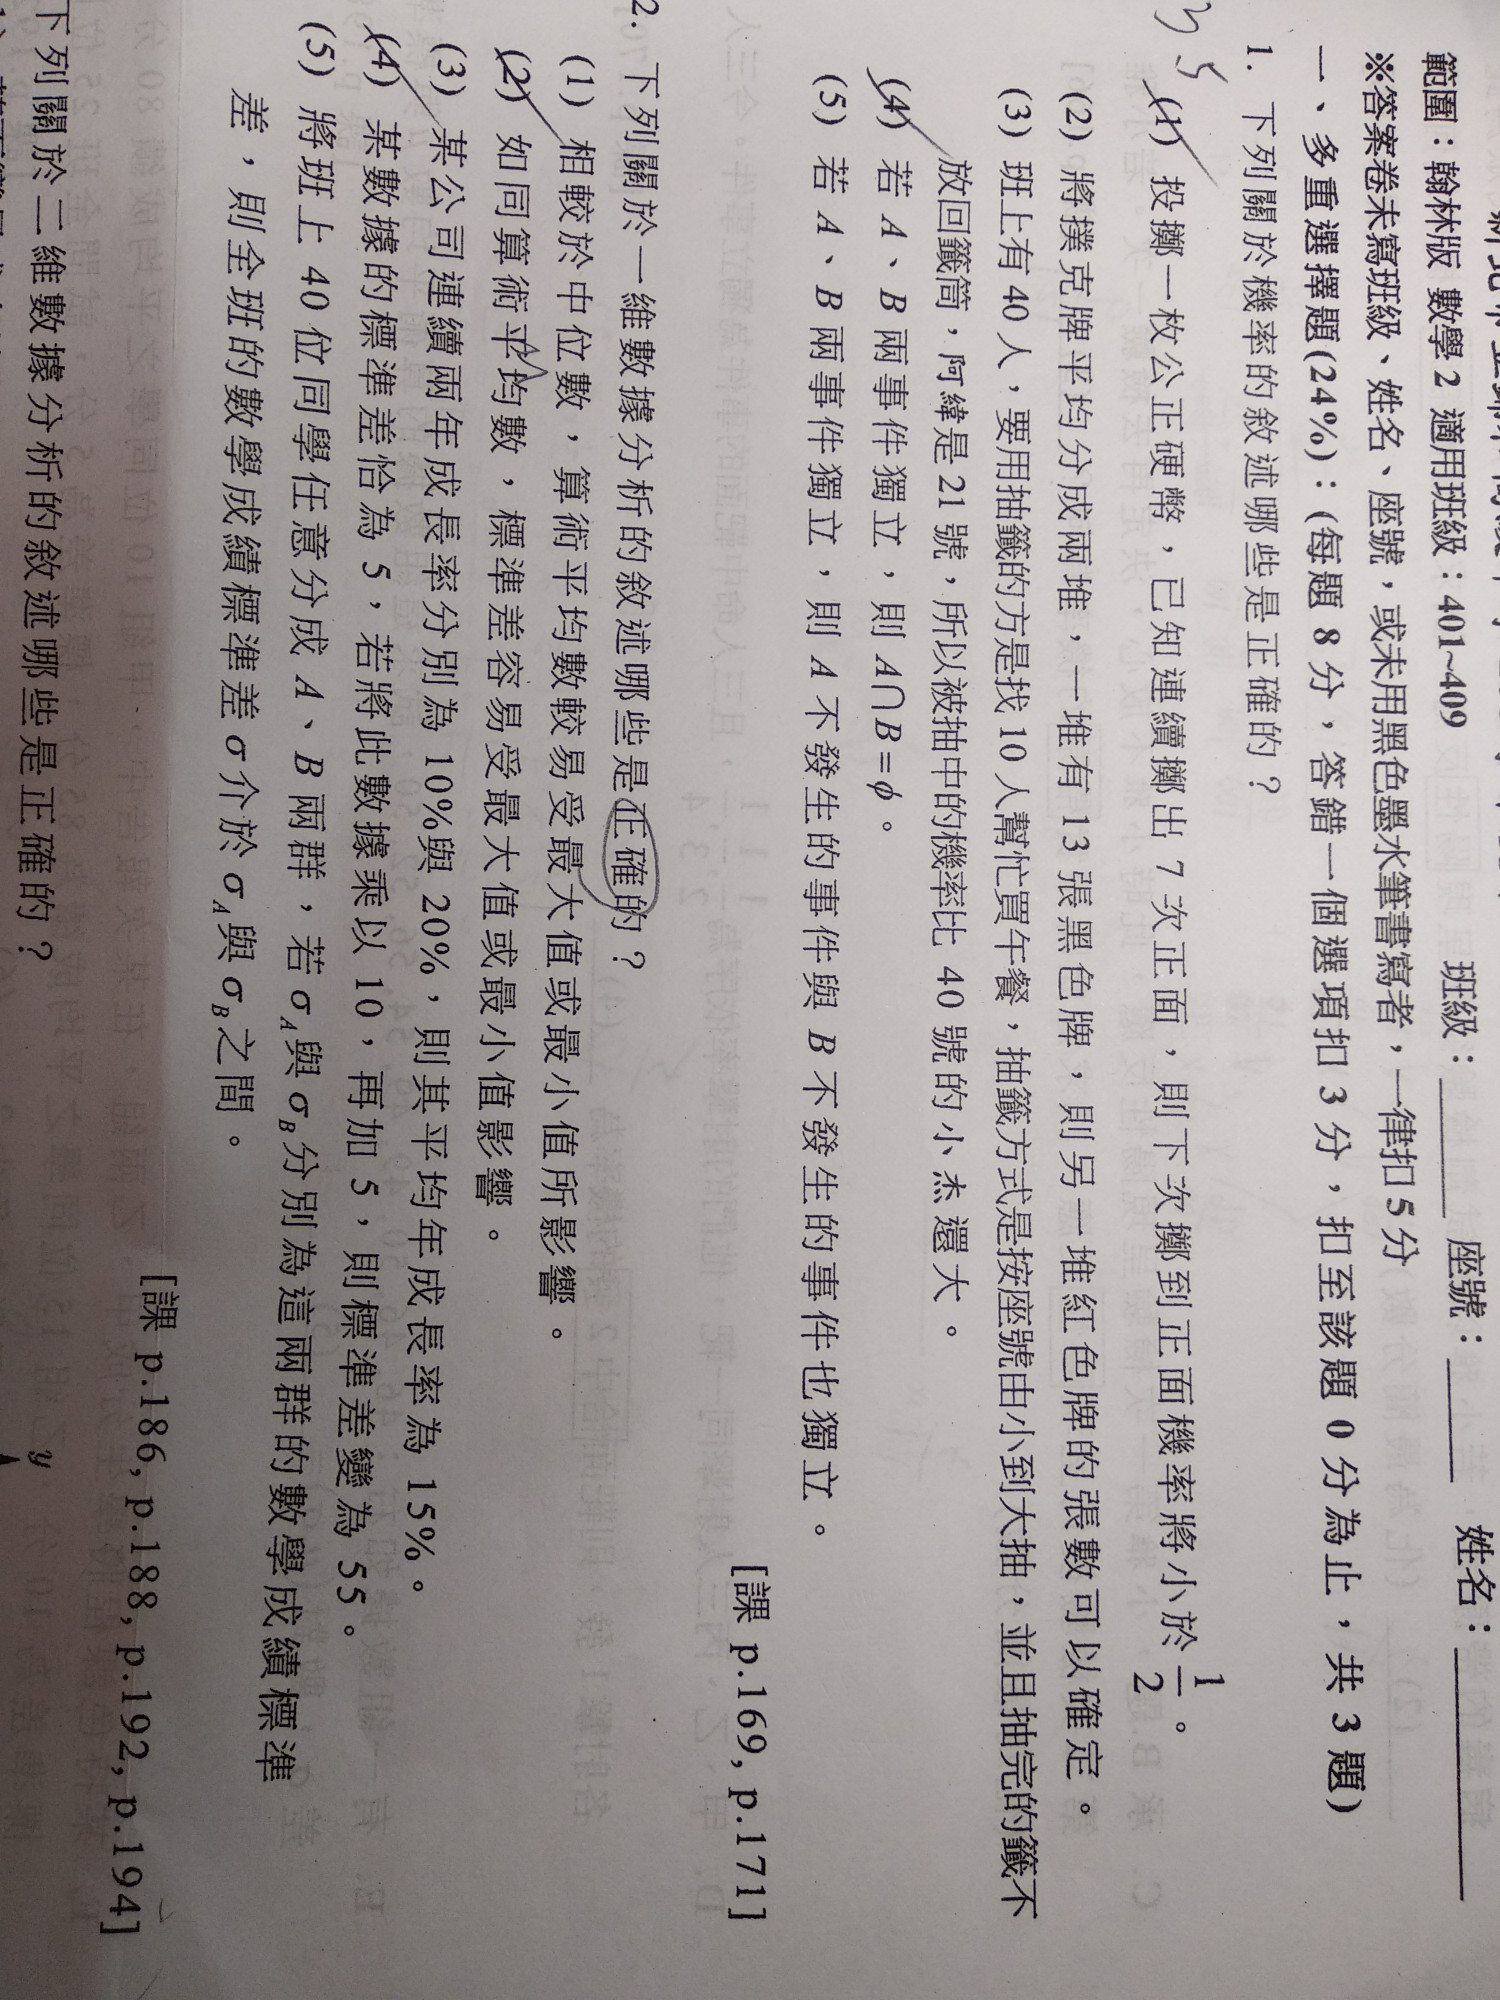 範圍：翰林版 數學2 適用班級：401~409 班級：______ 座號：______ 姓名：______
※答案卷未寫班級、姓名、座號，或未用黑色墨水筆書寫者，一律扣5分
一、多重選擇題(24%)：(每題 8 分，答錯一個選項扣 3 分，扣至該題 0 分為止，共 3 題)
1. 下列關於機率的敘述哪些是正確的？
(1) 投擲一枚公正硬幣，已知連續擲出 7 次正面，則下次擲到正面機率將小於 1/2。
(2) 將撲克牌平均分成兩堆，一堆有 13 張黑色牌，則另一堆紅色牌的張數可以確定。
(3) 班上有 40 人，要用抽籤的方是找 10 人幫忙買午餐，抽籤方式是按座號由小到大抽，並且抽完的籤不
放回籤筒，阿緯是 21 號，所以被抽中的機率比 40 號的小杰還大。
(4) 若 A、B 兩事件獨立，則 A∩B=ϕ。
(5) 若 A、B 兩事件獨立，則 A 不發生的事件與 B 不發生的事件也獨立。
[課 p.169, p.171]
2. 下列關於一維數據分析的敘述哪些是正確的？
(1) 相較於中位數，算術平均數較易受最大值或最小值所影響。
(2) 如同算術平均數，標準差容易受最大值或最小值影響。
(3) 某公司連續兩年成長率分別為 10%與 20%，則其平均年成長率為 15%。
(4) 某數據的標準差恰為 5，若將此數據乘以 10，再加 5，則標準差變為 55。
(5) 將班上 40 位同學任意分成 A、B 兩群，若 σA 與 σB 分別為這兩群的數學成績標準
差，則全班的數學成績標準差 σ 介於 σA 與 σB 之間。
[課 p.186, p.188, p.192, p.194]
下列關於二維數據分析的敘述哪些是正確的？
y